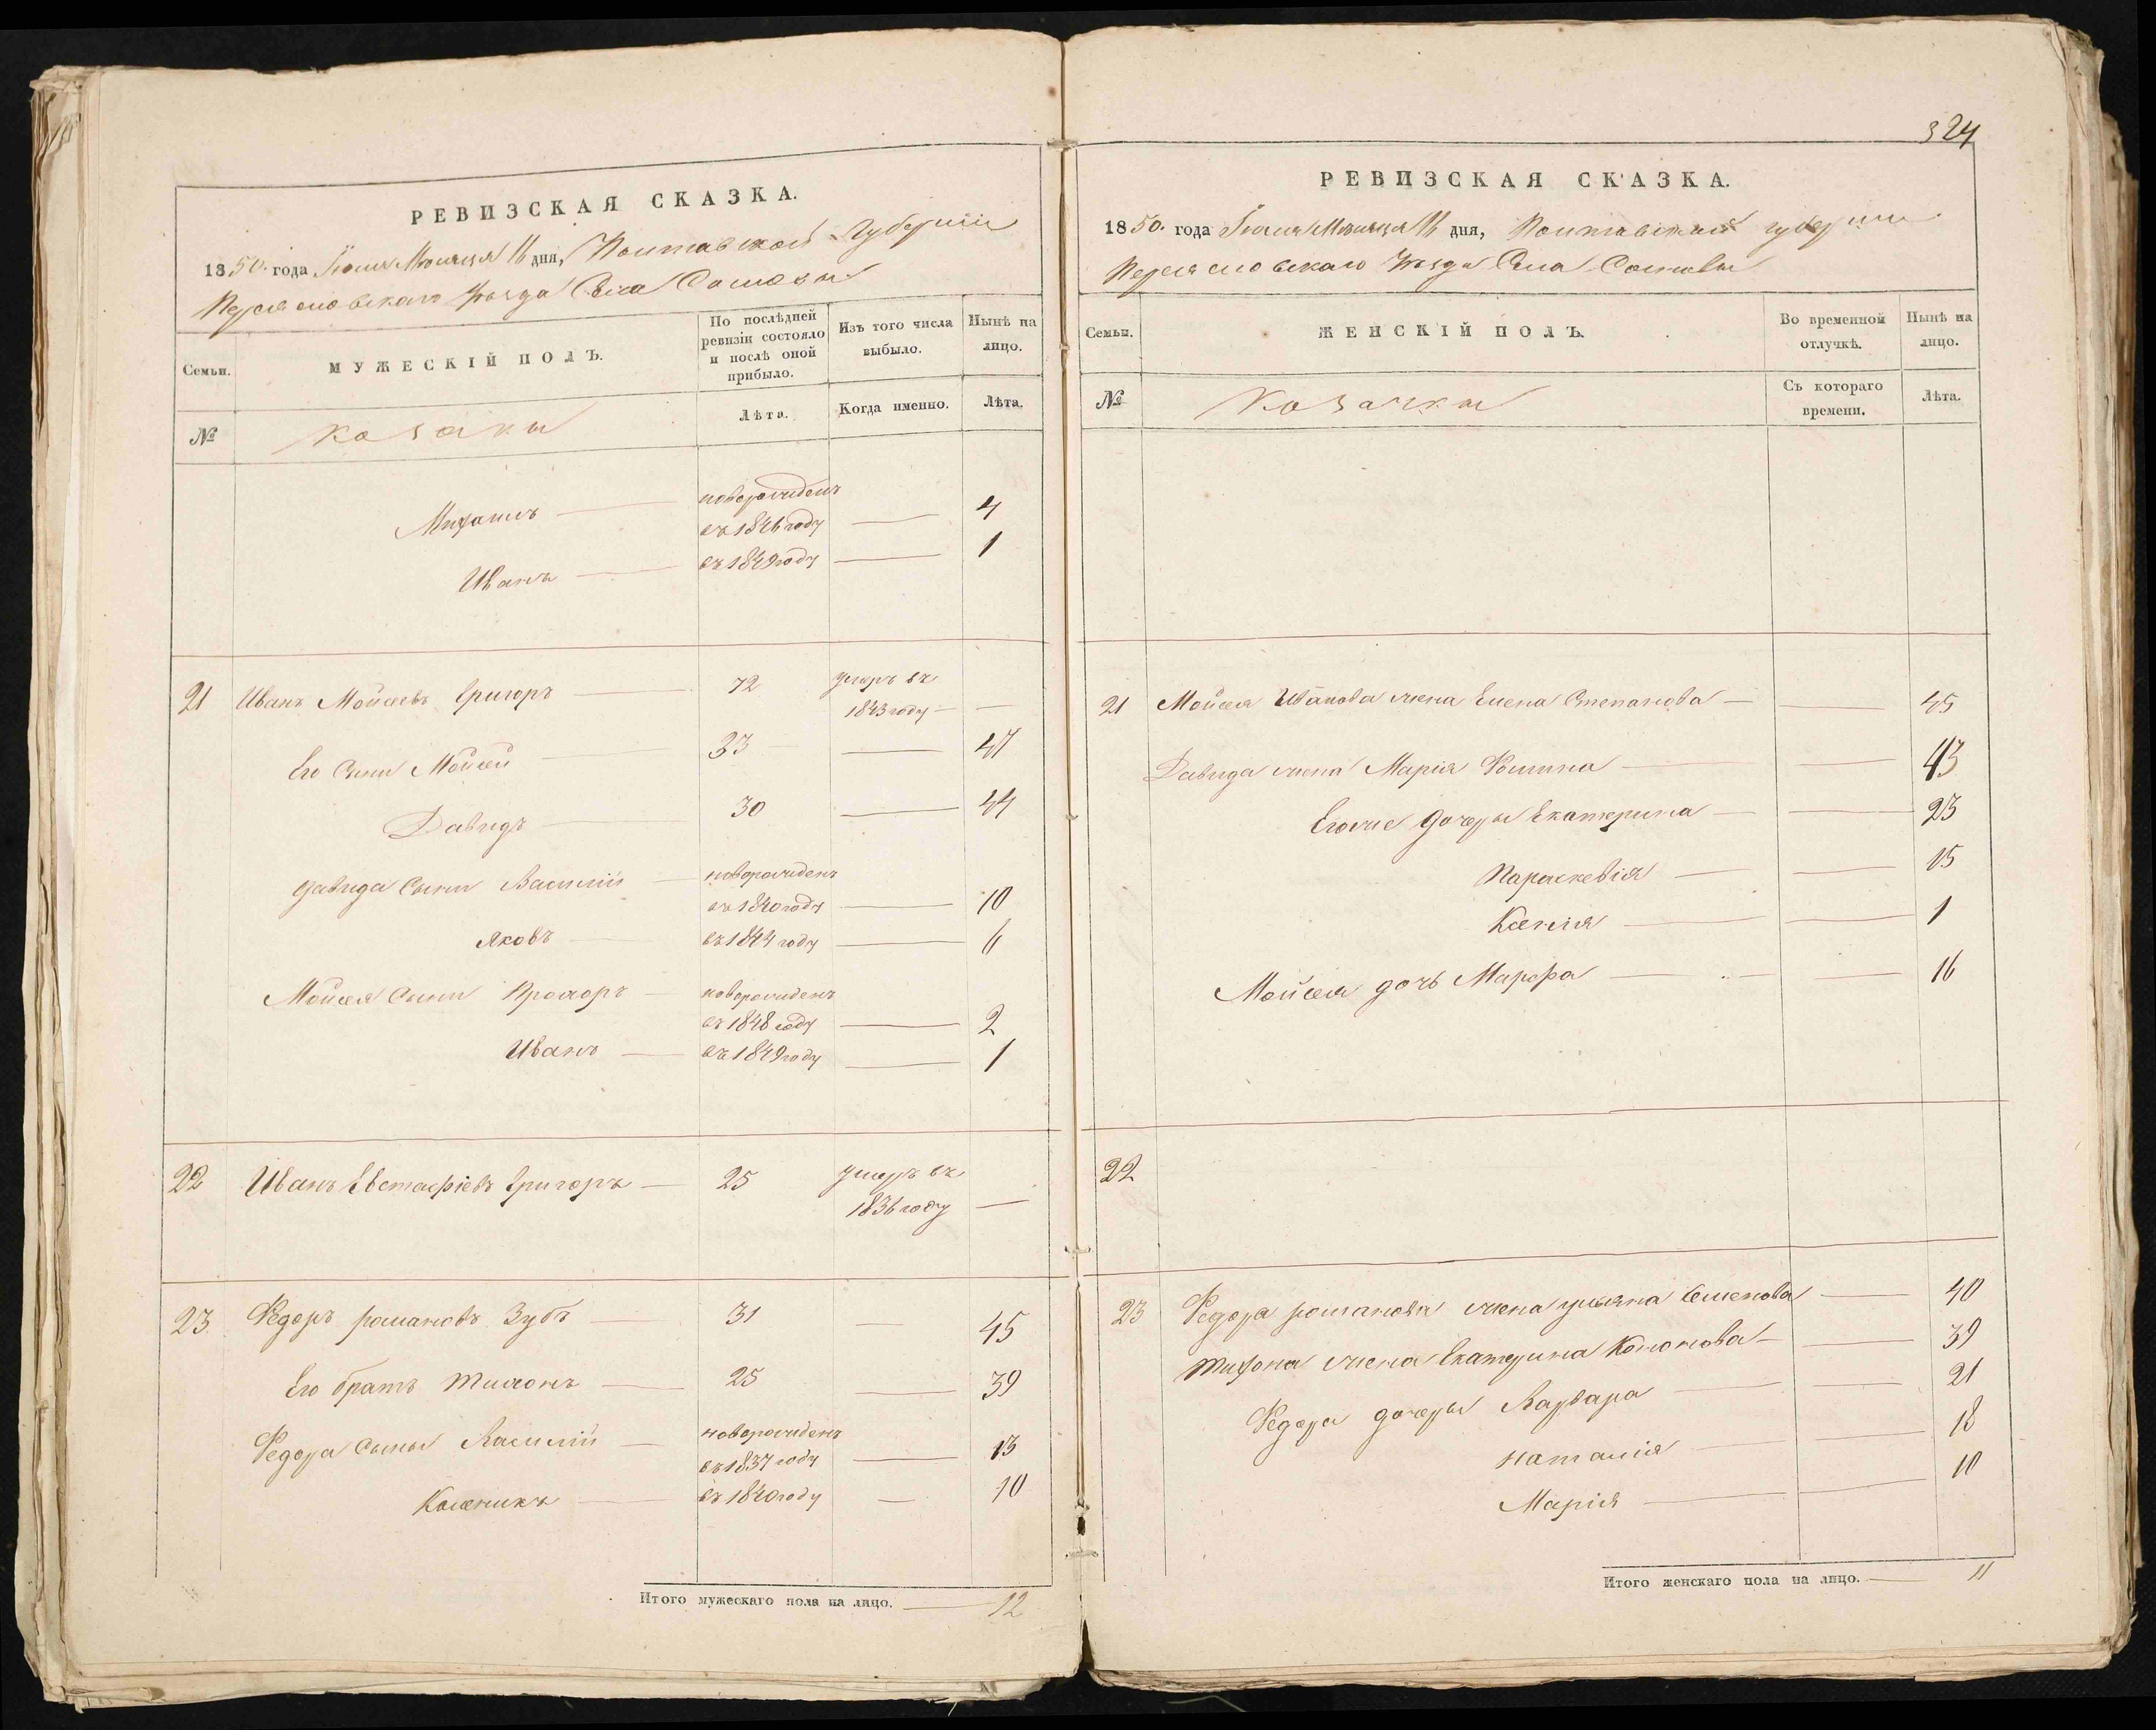 РЕВИЗСКАЯ СКАЗКА.
1850. года Іюня Мѣсяца 16 дня, Полтавской Губерніи
Переясловскаго Уѣзда Села Сосновы
Семьи.
МУЖЕСКІЙ ПОЛЪ.
По послѣдней ревизіи состояло и послѣ оной прибыло.
Изъ того числа выбыло.
Нынѣ на лицо.
№
козаки
Лѣта.
Когда именно.
Лѣта.
новорожденъ
Михаилъ въ 1846 году 4
Иванъ въ 1849 году 1
21 Иванъ Мойсеевъ Григоръ 72 умеръ въ
1843 году
Его Сыни Мойсей 33 47
Давидъ 30 44
Давида Сыни Василій новорожденъ
въ 1840 году 10
Яковъ въ 1844 году 6
Мойсея Сыни Прохоръ новорожденъ
въ 1848 году 2
Иванъ въ 1849 году 1
22 Иванъ Евстафіевъ Григоръ 25 умеръ въ
1836 году
23 Федоръ романовъ Зубъ 31 45
Его братъ Тихонъ 25 39
Федора Сыны Василій новорожденъ
въ 1837 году 13
Каленикъ въ 1840 году 10
Итого мужескаго пола на лицо. 12
324
РЕВИЗСКАЯ СКАЗКА.
1850. года Іюня Мѣсяца 16 дня, Полтавской губерніи
Переясловскаго Уѣзда Села Сосновы
Семьи.
ЖЕНСКІЙ ПОЛЪ.
Во временной отлучкѣ.
Нынѣ на лицо.
№
Козачки
Съ котораго времени.
Лѣта.
21 Мойсея Иванова жена Елена Степанова 45
Давида жена Марія Фомина 43
Егоже дочеры Екатерина 23
Параскевія 15
Ксенія 1
Мойсея дочь Марфа 16
22
23 Федора романова жена уліяна Семенова 40
Тихона жена Екатерина Кононова 39
Федора дочеры Варвара 21
Наталія 18
Марія 10
Итого женскаго пола на лицо. 11